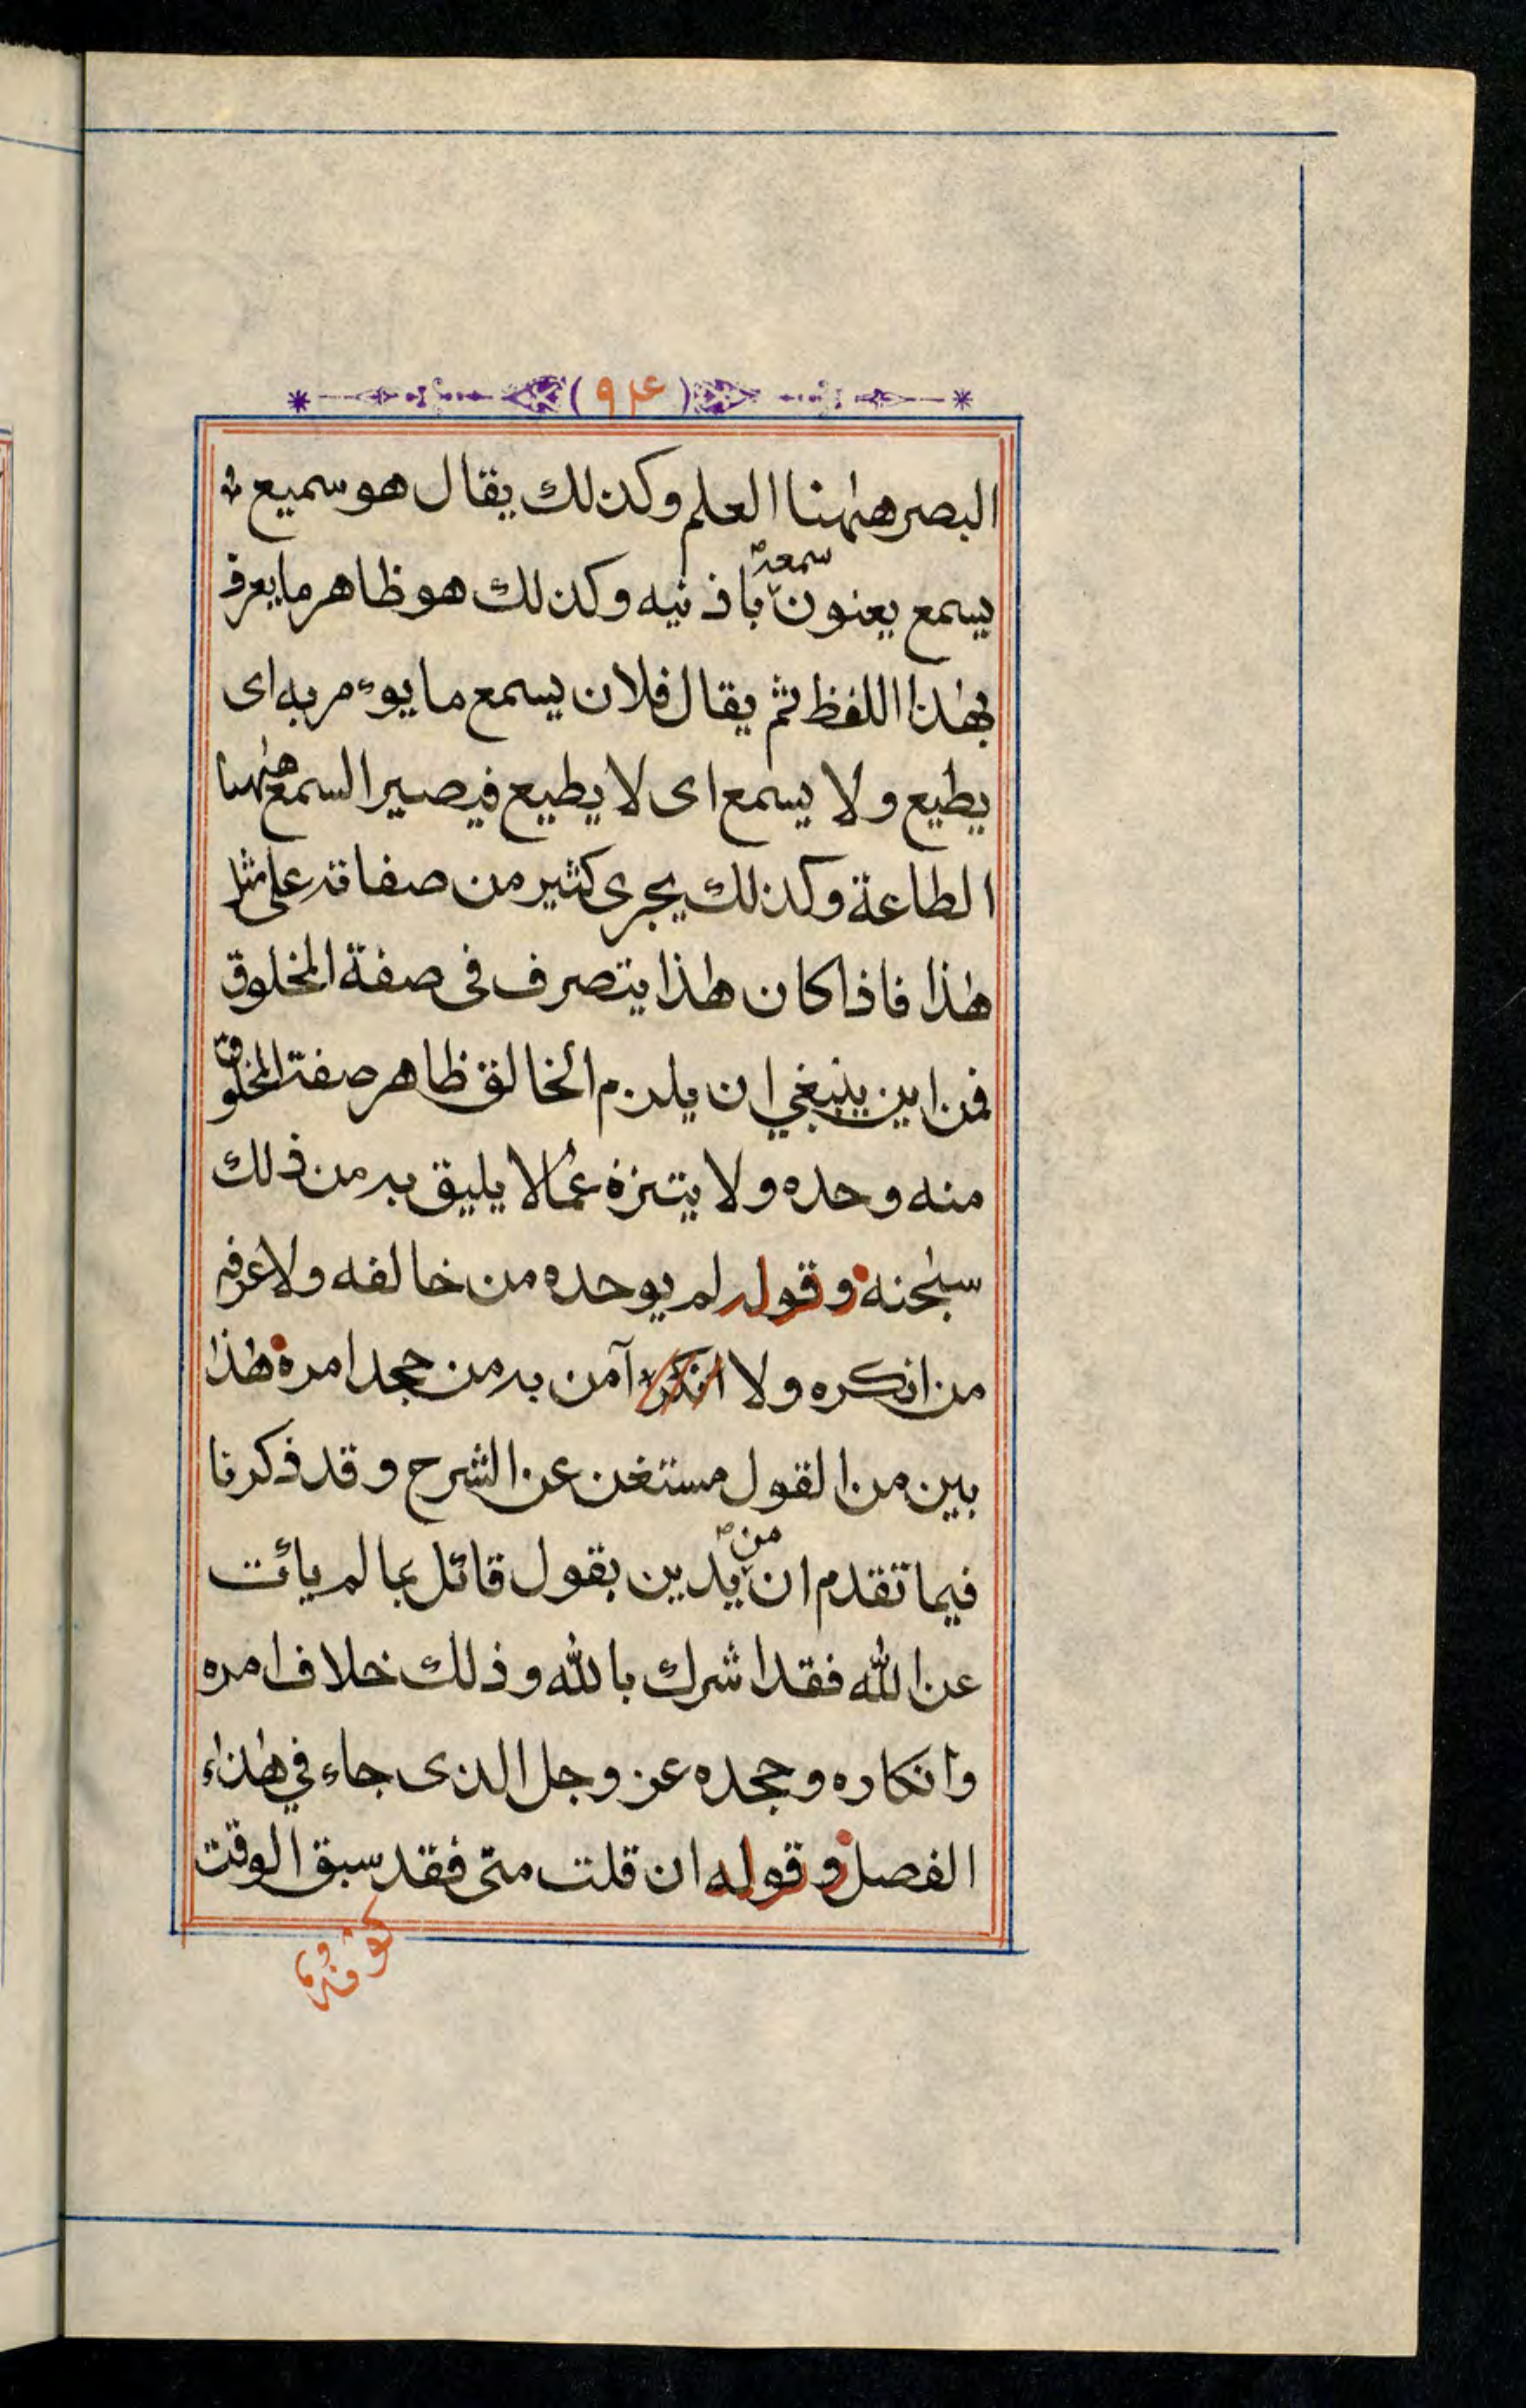 (٩۴)
البصر هٰهنا العلم وكذلك يقال هو سميع
يسمع يعنون سمعه باذنيه وكذلك هو ظاهر ما يعرف
بهٰذا اللفظ ثم يقال فلان يسمع ما يوءمر به اى
يطيع ولا يسمع اى لا يطيع فيصير السمع هٰهنا
الطاعة وكذلك يجرى كثير من صفاته على مثل
هٰذا فاذا كان هٰذا يتصرف فى صفة المخلوق
فمن اين ينبغي ان يلزم الخالق ظاهر صفة المخلوق
منه وحده ولا يتنزه عمالا يليق به من ذلك
سبٰحنه وقوله لم يوحده من خالفه ولا عرفه
من انكره ولا انكره آمن به من جحد امره هٰذا
بين من القول مستغن عن الشرح وقد ذكرنا
فيما تقدم ان من يدين بقول قائل بما لم يأت
عن الله فقد اشرك بالله وذلك خلاف امره
وانكاره وجحده عز وجل الذى جاء في هٰذاء
الفصل وقوله ان قلت متى فقد سبق الوقت
كونه